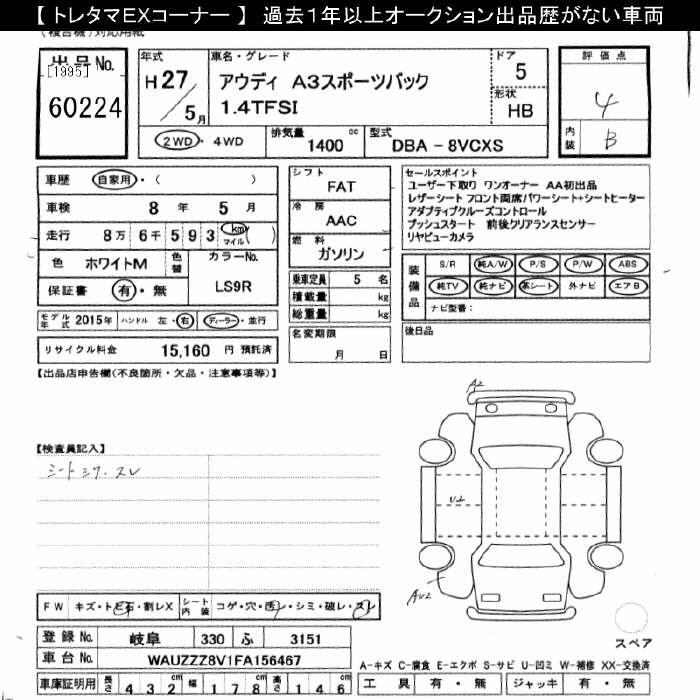 【 トレタマEXコーナー 】 過去1年以上オークション出品歴がない車両
(複合機)対応用紙
出品No.
[1995]
60224
年式
H27/5月
車名・グレード
アウディ A3スポーツバック
1.4TFSI
ドア
5
形状
HB
評価点
4
内装
B
2WD・4WD
排気量
1400 cc
型式
DBA - 8VCXS
車歴
自家用・( )
車検
8 年 5 月
走行
8万 6千 5 9 3 km マイル ( )
色
ホワイトM
色替
カラーNo.
LS9R
保証書
有・無
モデル年式 2015年
ハンドル 左・右
ディーラー・並行
リサイクル料金 15,160 円 預託済
シフト
FAT
冷房
AAC
燃料
ガソリン
乗車定員 5 名
積載量 kg
総重量 kg
名変期限
月 日
セールスポイント
ユーザー下取り ワンオーナー AA初出品
レザーシート フロント両席パワーシート+シートヒーター
アダプティブクルーズコントロール
プッシュスタート 前後クリアランスセンサー
リヤビューカメラ
装備品
S/R 純A/W P/S P/W ABS
純TV 純ナビ 革シート 外ナビ エアB
ナビ型番:
後日品
【出品店申告欄(不良箇所・欠品・注意事項等)】
【検査員記入】
シートシワ・スレ
A2
U2
AU2
スペア
FW キズ・トビ石・割レX
シート内装 コゲ・穴・汚レ・シミ・破レ・スレ
登録No. 岐阜 330 ふ 3151
車台No. WAUZZZ8V1FA156467
車庫証明用 長さ 432 cm 幅 178 cm 高さ 146 cm
A-キズ C-腐食 E-エクボ S-サビ U-凹ミ W-補修 XX-交換済
工具 有・無 ジャッキ 有・無